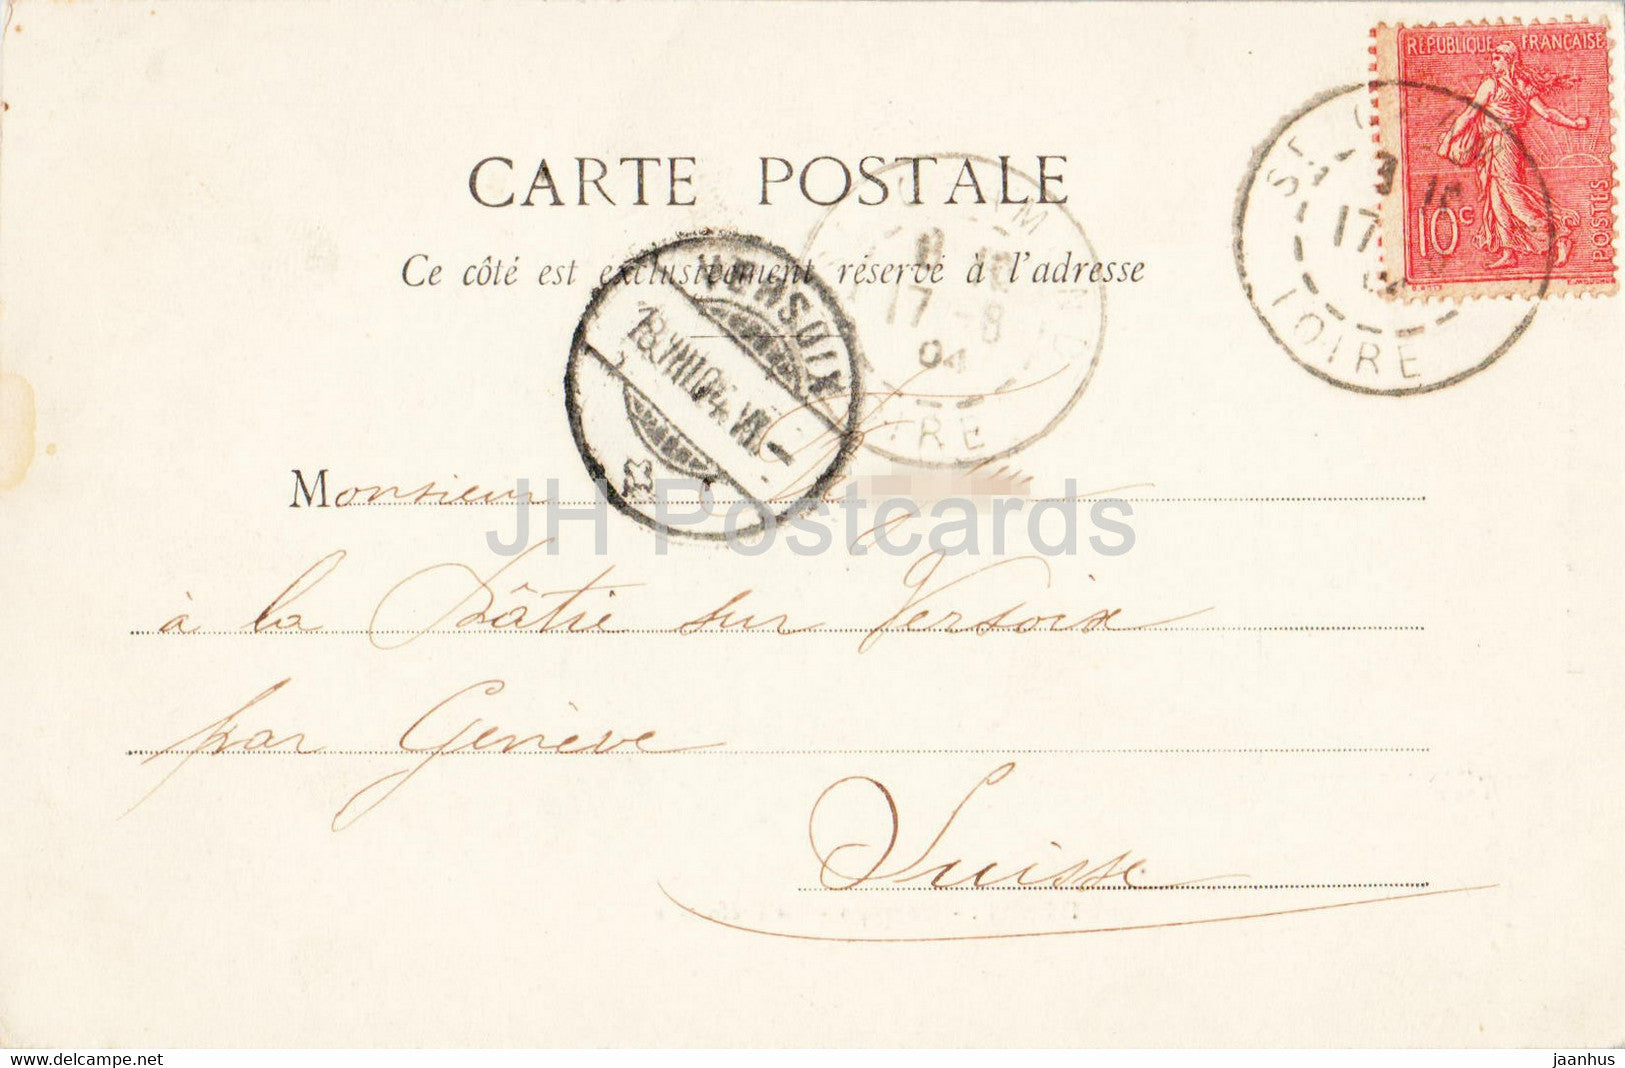 RÉPUBLIQUE FRANÇAISE
10c
POSTES
CARTE POSTALE
Ce côté est exclusivement réservé à l'adresse
17
04
LOIRE
17 -8
04
18.VIII.04.VII.-
Monsieur
JH Postcards
à la Bâtie sur Versoix
par Genève
Suisse
www.delcampe.net
jaanhus